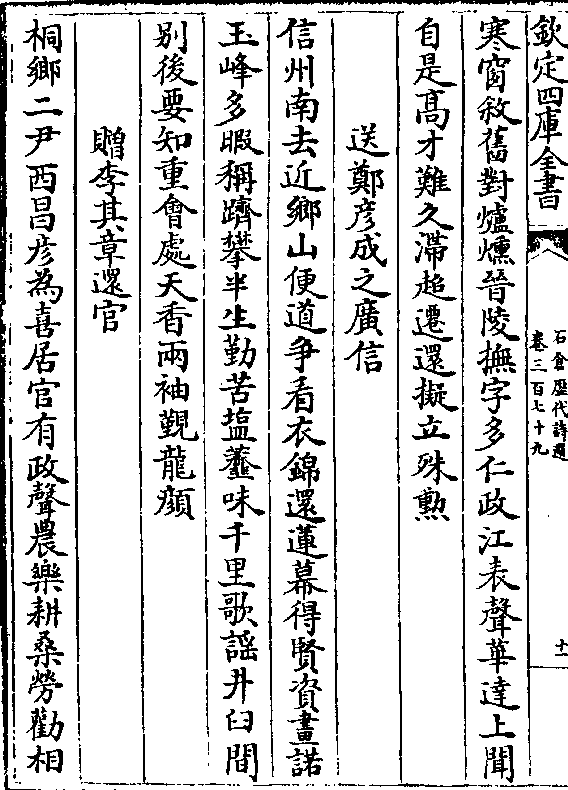 欽定四庫全書
石倉歷代詩選
卷三百七十九
十一
寒窗敘舊對爐燻晉陵撫字多仁政江表聲華達上聞
自是高才難久滯超遷還擬立殊勲
送鄭彦成之廣信
信州南去近鄉山便道争看衣錦還蓮幕得賢資畫諾
玉峰多暇稱躋攀半生勤苦塩虀味千里歌謡井臼間
别後要知重會處天香兩袖覲龍顔
贈李其章還官
桐鄉二尹西昌彦為喜居官有政聲農樂耕桑勞勸相